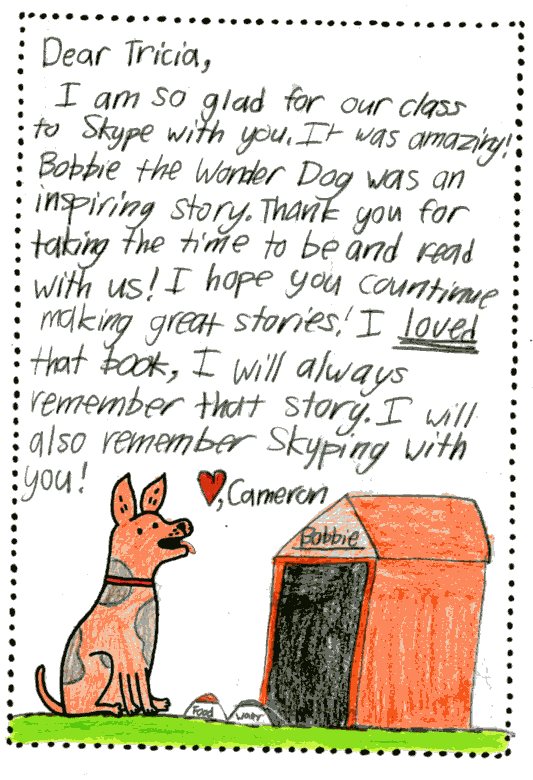 Dear Tricia,
I am so glad for our class
to Skype with you. It was amazing!
Bobbie the Wonder Dog was an
inspiring story. Thank you for
taking the time to be and read
with us! I hope you countinue
making great stories! I loved
that book, I will always
remember that story. I will
also remember Skyping with
you!
♥, Cameron
Bobbie
Food
Water